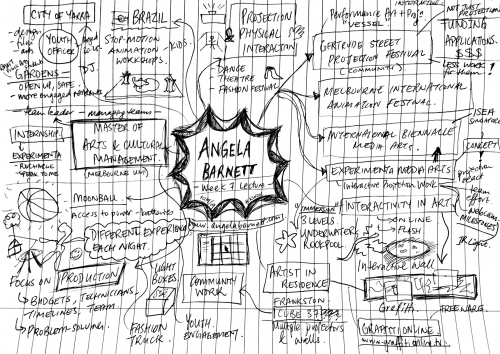 CITY OF YARRA
- design
- film
- arts
YOUTH
OFFICER
DJ.
GARDENS
OPEN UP, SAFE.
more engaged residents
team leader
managing teams
BRAZIL
STOP-MOTION
ANIMATION
WORKSHOPS.
KIDS.
PROJECTION
PHYSICAL
INTERACTION
DANCE
THEATRE
FASHION FESTIVAL
INTERACTIVE
Performance Art + Proj.
"VESSEL"
NOT JUST
PROJECTION
FUNDING
APPLICATIONS.
$$$
LESS WORK
for them!
GERTRUDE STREET
PROJECTION FESTIVAL
(COMMUNITY)
MELBOURNE INTERNATIONAL
ANIMATION FESTIVAL.
INTERNATIONAL BIENNALLE
MEDIA ARTS.
ISEA
CONCEPT
EXPERIMENTA MEDIA ARTS
Interactive Projection Work
INTERACTIVITY IN ART
ONLINE
FLASH
Interactive Wall
team
effort
WEBCAM
IR Lights.
INTERNSHIP
EXPERIMENTA
MASTER OF
ARTS & CULTURAL
MANAGEMENT
(MELBOURNE UNI)
ANGELA
BARNETT
Week 7 Lecture
www.angelabarnett.com
MOONBALL
Access to power - batteries
DIFFERENT EXPERIENCE
EACH NIGHT.
IMMERSION
3 LEVELS
UNDERWATER
ROCKPOOL
FOCUS ON
PRODUCTION
BUDGETS, TECHNICIANS,
TIMELINES, TEAM
PROBLEM-SOLVING.
LIGHT
BOXES
FASHION
TRUCK.
COMMUNITY
WORK
YOUTH
ENGAGEMENT.
ARTIST IN
RESIDENCE
FRANKSTON
CUBE 37
Multiple projectors
& walls.
Graffiti
FREEWARE.
GRAFFITIONLINE